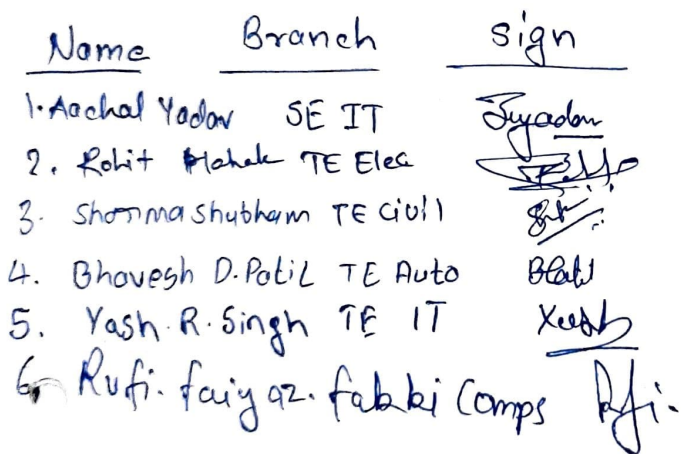 Name Branch Sign
1. Aachal Yadav SE IT
2. Rohit TE Elec
3. Sharma Shubham TE Civil
4. Bhavesh D. Patil TE Auto
5. Yash. R. Singh TE IT Yash
6, Rufi. faiyaz. fakki Comps Rufi.